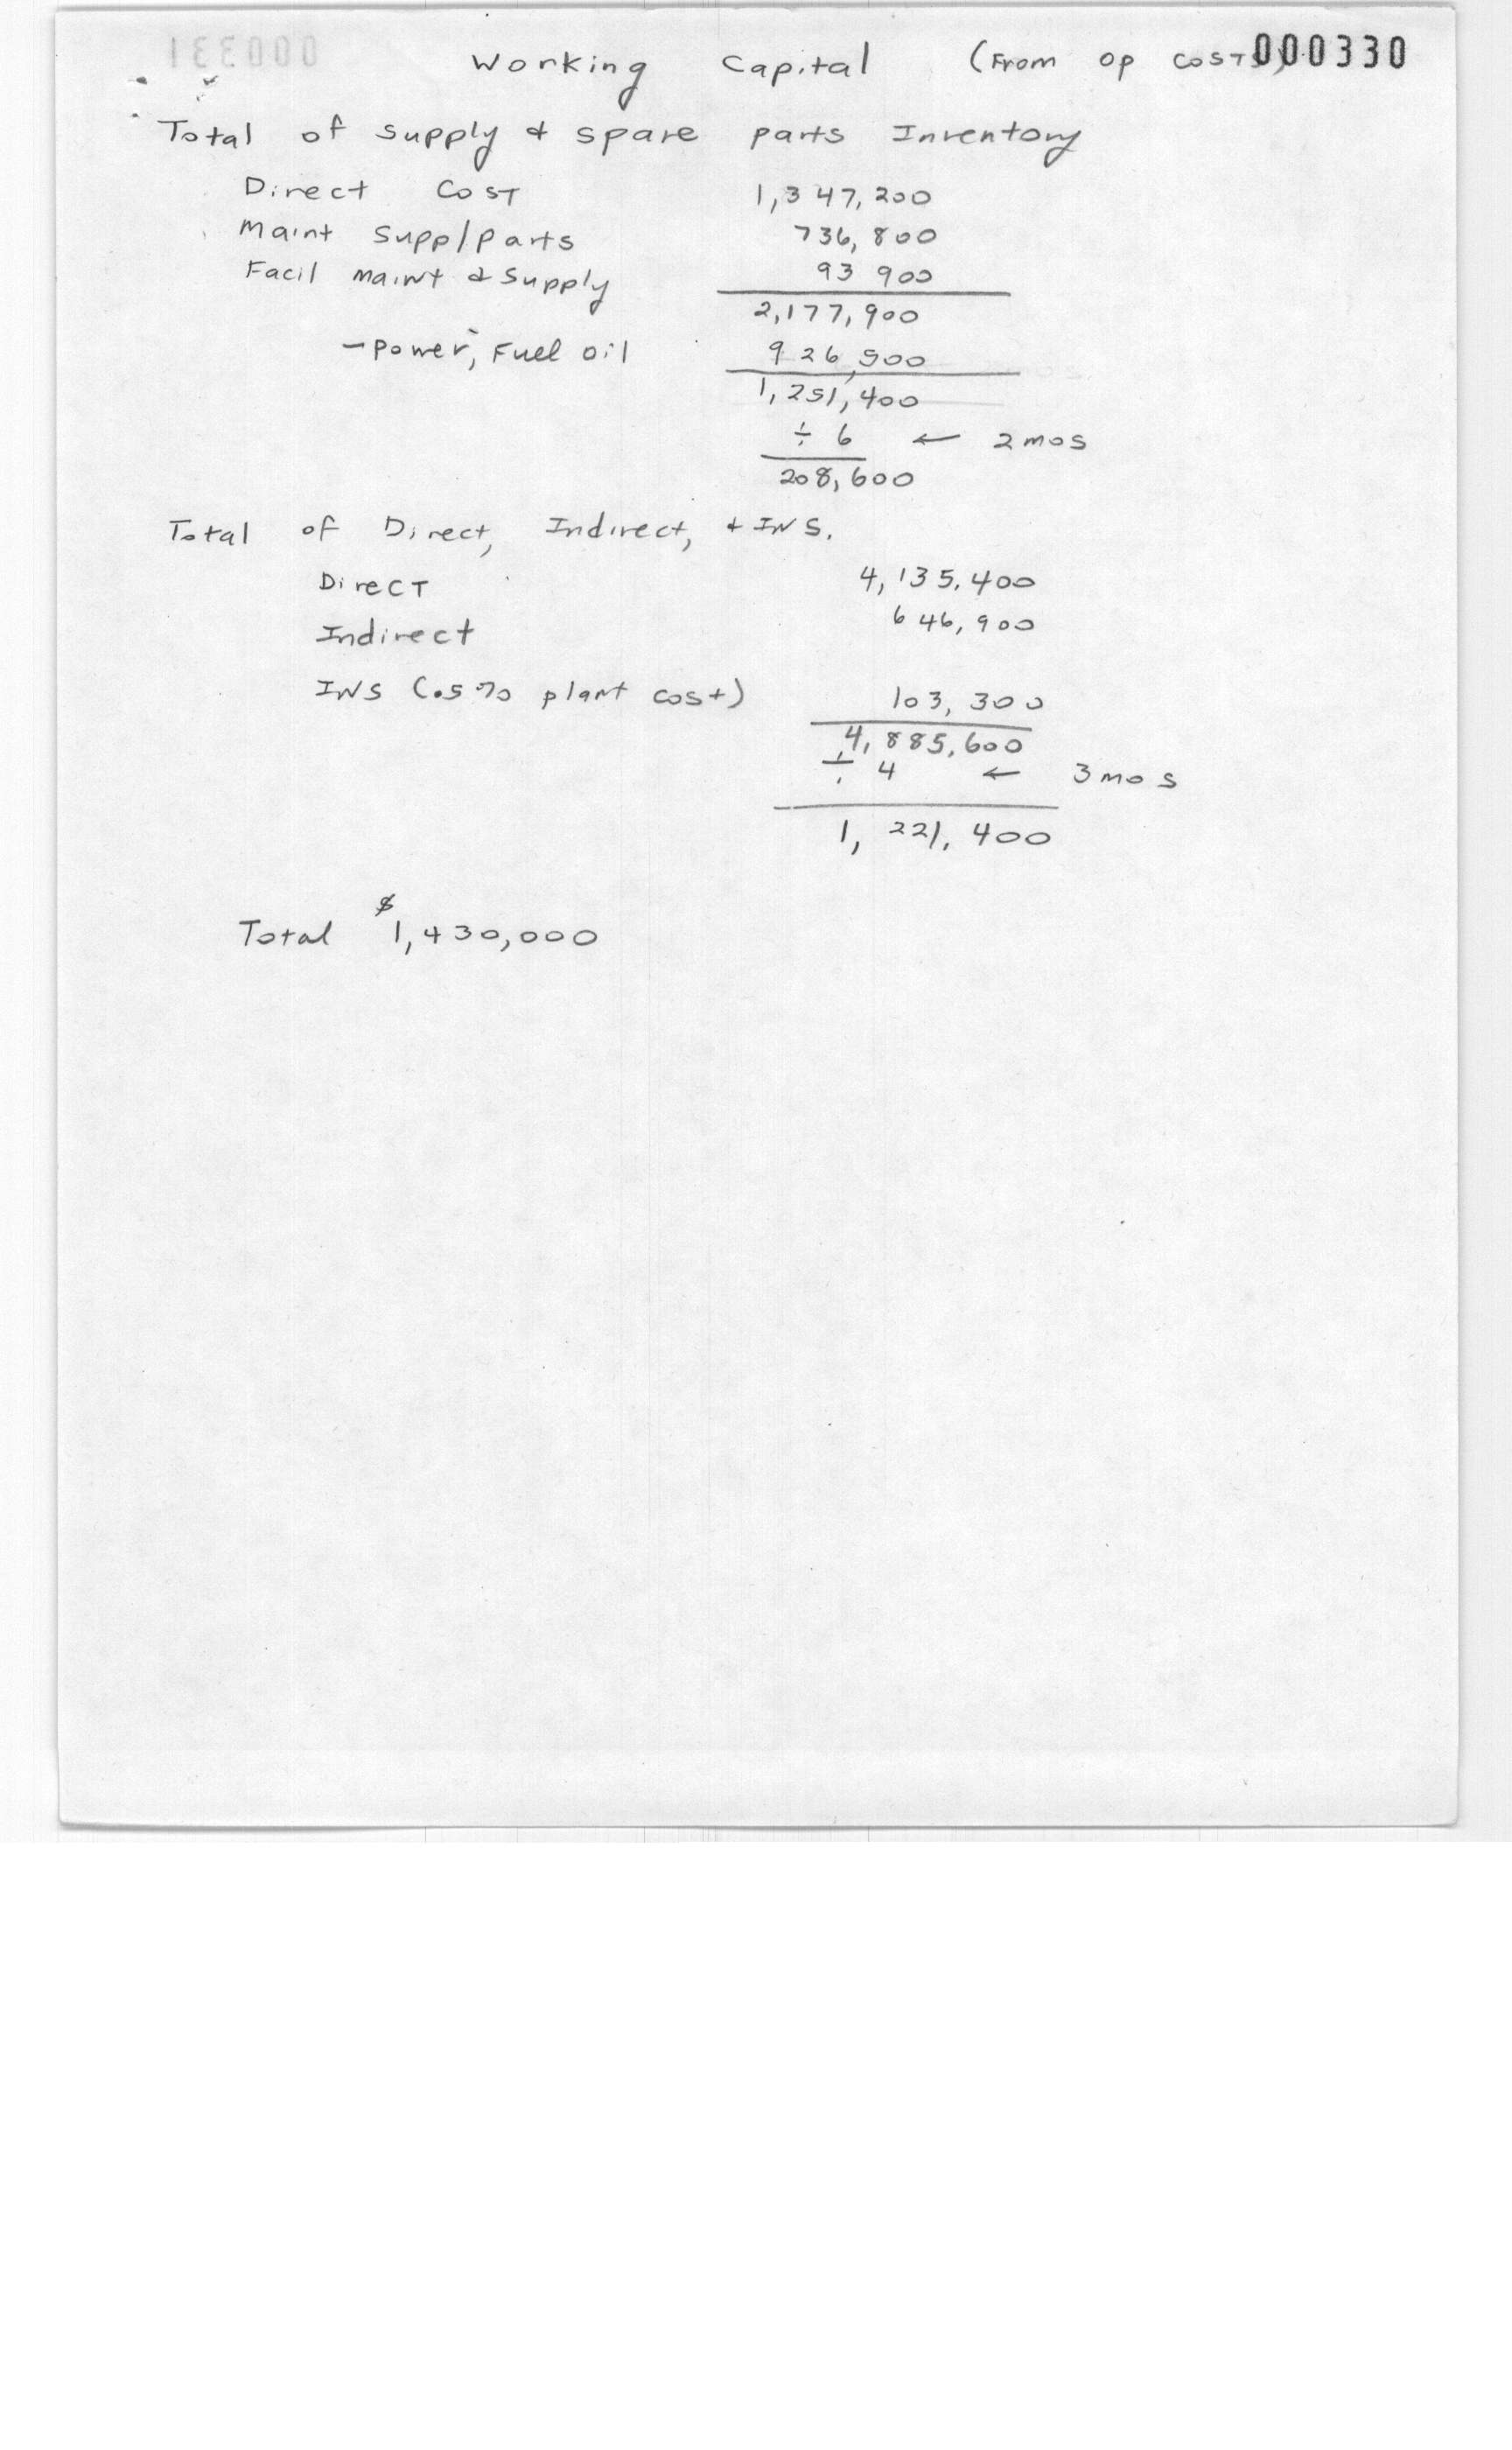 Working Capital (From op costs) 000330
Total of supply & spare parts Inventory
Direct Cost 1,347,200
Maint Supp/Parts 736,800
Facil Maint & Supply 93 900
2,177,900
- Power, Fuel Oil 926,500
1,251,400
÷ 6 ← 2 mos
208,600
Total of Direct, Indirect, & INS.
Direct 4,135,400
Indirect 646,900
INS (.5% plant cost) 103,300
4,885,600
÷ 4 ← 3 mos
1,221,400
Total $1,430,000